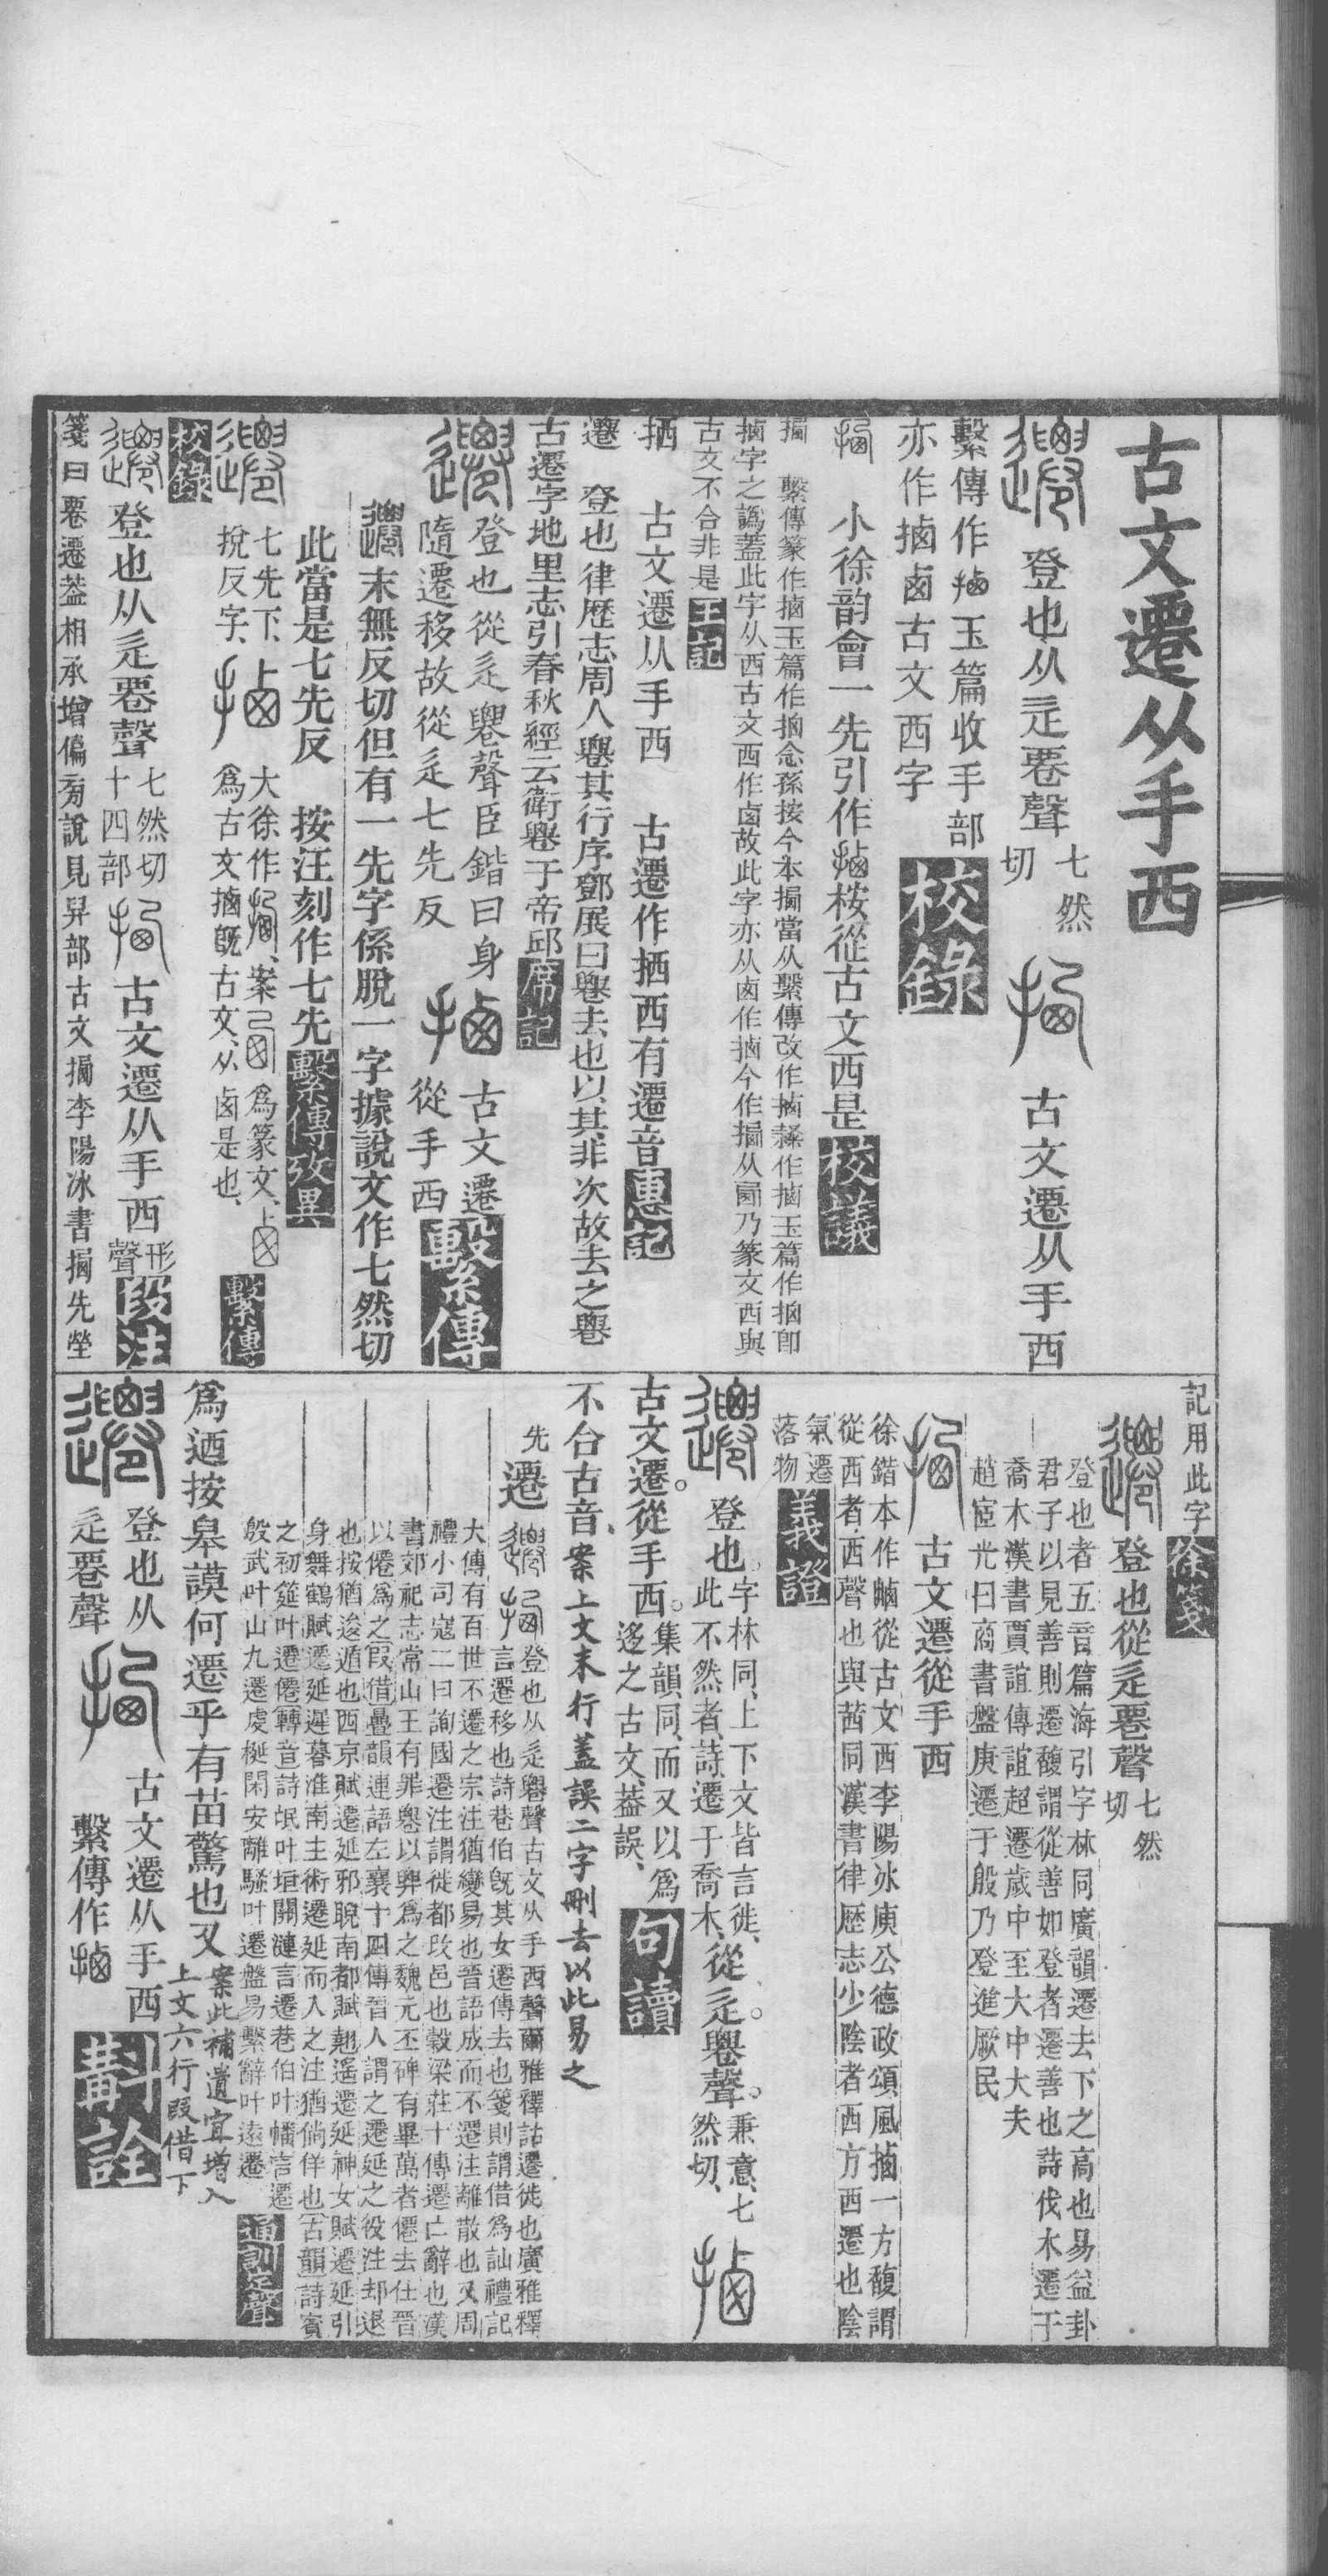 古文遷从手西
登也从辵䙴聲
七然
切
古文遷从手西
繫傳作㧄玉篇收手部
亦作㧄卥古文西字
校錄
小徐韵會一先引作㧄按從古文西是
校議
繫傳篆作㧄玉篇作
念孫按今本
當从繫傳改作
㧄字之譌蓋此字从西古文西作卥故此字亦从卥作㧄今作
乃篆文西與
古文不合非是
王記
拪
古文遷从手西
古遷作拪西有遷音
惠記
遷
登也律歷志周人䙴其行序鄧展曰䙴去也以其非次故去之䙴
古遷字地里志引春秋經云衛䙴于帝邱
席記
登也從辵䙴聲臣鍇曰身
隨遷移故從辵七先反
古文遷
從手西
繫傳
末無反切但有一先字係脫一字據說文作七然切
此當是七先反
按汪刻作七先
繫傳攷異
七先下、
挩反字、
大徐作
案
爲篆文、
爲古文㧄旣古文、从卥是也、
繫傳
校錄
登也从辵䙴聲
七然切
十四部
古文遷从手西
形
聲
段注
箋曰䙴遷葢相承增偏旁說見舁部古文
李陽冰書
先塋
記用此字
徐箋
登也從辵䙴聲
七然
切
登也者五音篇海引字林同廣韻遷去下之高也易益卦
君子以見善則遷馥謂從善如登者遷善也詩伐木遷于
喬木漢書賈誼傳誼超遷歲中至大中大夫
趙宧光曰商書盤庚遷于殷乃登進厥民
古文遷從手西
徐鍇本作㧄從古文西李陽冰庾公德政頌風㧄一方馥謂
從西者西聲也與茜同漢書律歷志少陰者西方西遷也陰
氣遷
落物
義證
登也
字林同、上下文皆言徙、
此不然者、詩、遷于喬木、
從辵䙴聲。
兼意、七
然切、
古文遷。從手西。
集韻同、而又以爲
迻之古文、葢誤、
句讀
不合古音、
案上文末行蓋誤二字刪去以此易之
先
遷
登也从辵䙴聲古文从手西聲爾雅釋詁遷徙也廣雅釋
言遷移也詩巷伯旣其女遷傳去也箋則謂借爲訕禮記
大傳有百世不遷之宗注猶變易也晉語成而不遷注離散也又周
禮小司寇二曰詢國遷注謂徙都改邑也穀梁莊十傳遷亡辭也漢
書郊祀志常山王有罪䙴以
爲之魏元丕碑有畢萬者僊去仕晉
以僊爲之叚借疊韻連語左襄十四傳晉人謂之遷延之役注却退
也按猶逡遁也西京賦遷延邪睨南都賦翹遙遷延神女賦遷延引
身舞鶴賦遷延遲暮淮南主術遷延而入之注猶倘佯也古韻詩賓
之初筵叶遷僊轉音詩氓叶垣關漣言遷巷伯叶幡言遷
殷武叶山丸遷虔梴閑安離騷叶遷盤易繫辭叶遠遷
通訓定聲
爲迺按皋謨何遷乎有苗驚也又
案此補遺宜增入
上文六行叚借下
登也从
辵䙴聲
古文遷从手西
繫傳作㧄
斠詮